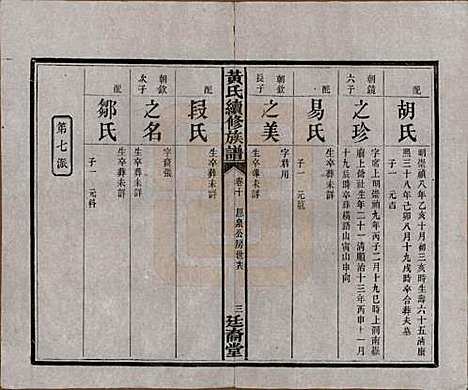 配
胡氏
明崇禎八年乙亥十月初三亥時生壽六十五清康
熙三十八年己卯八月十九戌時卒合葬夫墓
子一 元吉
朝鏡
六子
之珍
字席上明崇禎九年丙子二月十九巳時上湖南嶽
廟上僑社生二十一清順治十三年丙申十一月
十九辰時卒葬橫語山寅山申向
配
易氏
生卒葬未詳
子一 元
朝欽
長子
之美
字君用
生卒葬未詳
黃氏續修族譜
卷十
思泉公房世系
三
廷裔堂
配
段氏
生卒葬未詳
朝欽
次子
之名
字
生卒葬未詳
配
鄒氏
生卒葬未詳
子一 元科
第七派